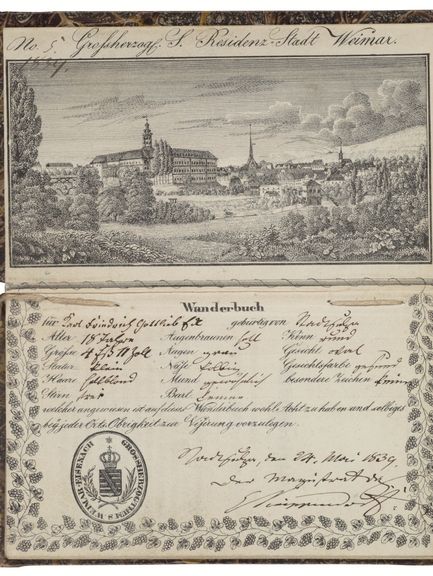 No. 5. Großherzogl. S. Residenz-Stadt Weimar.
1839.
Wanderbuch
für Karl Friedrich Gottlieb gebürtig von Stadtsulza
Alter 18 Jahre Augenbraunen Kinn rund
Größe 4 Fß 11 Zoll Augen grau Gesicht oval
Statur klein Nase Gesichtsfarbe gesund
Haare hellblond Mund gewöhnlich besondere Zeichen keine
Stirn frei Bart keinen
welcher angewiesen ist auf dieses Wanderbuch wohl Acht zu haben und selbiges
bey jeder Orts-Obrigkeit zur Visirung vorzulegen.
GROSHERZOGTHUM S. WEIMAR-EISENACH
Stadtsulza, den 24. Mai 1839.
Der Magistrat da